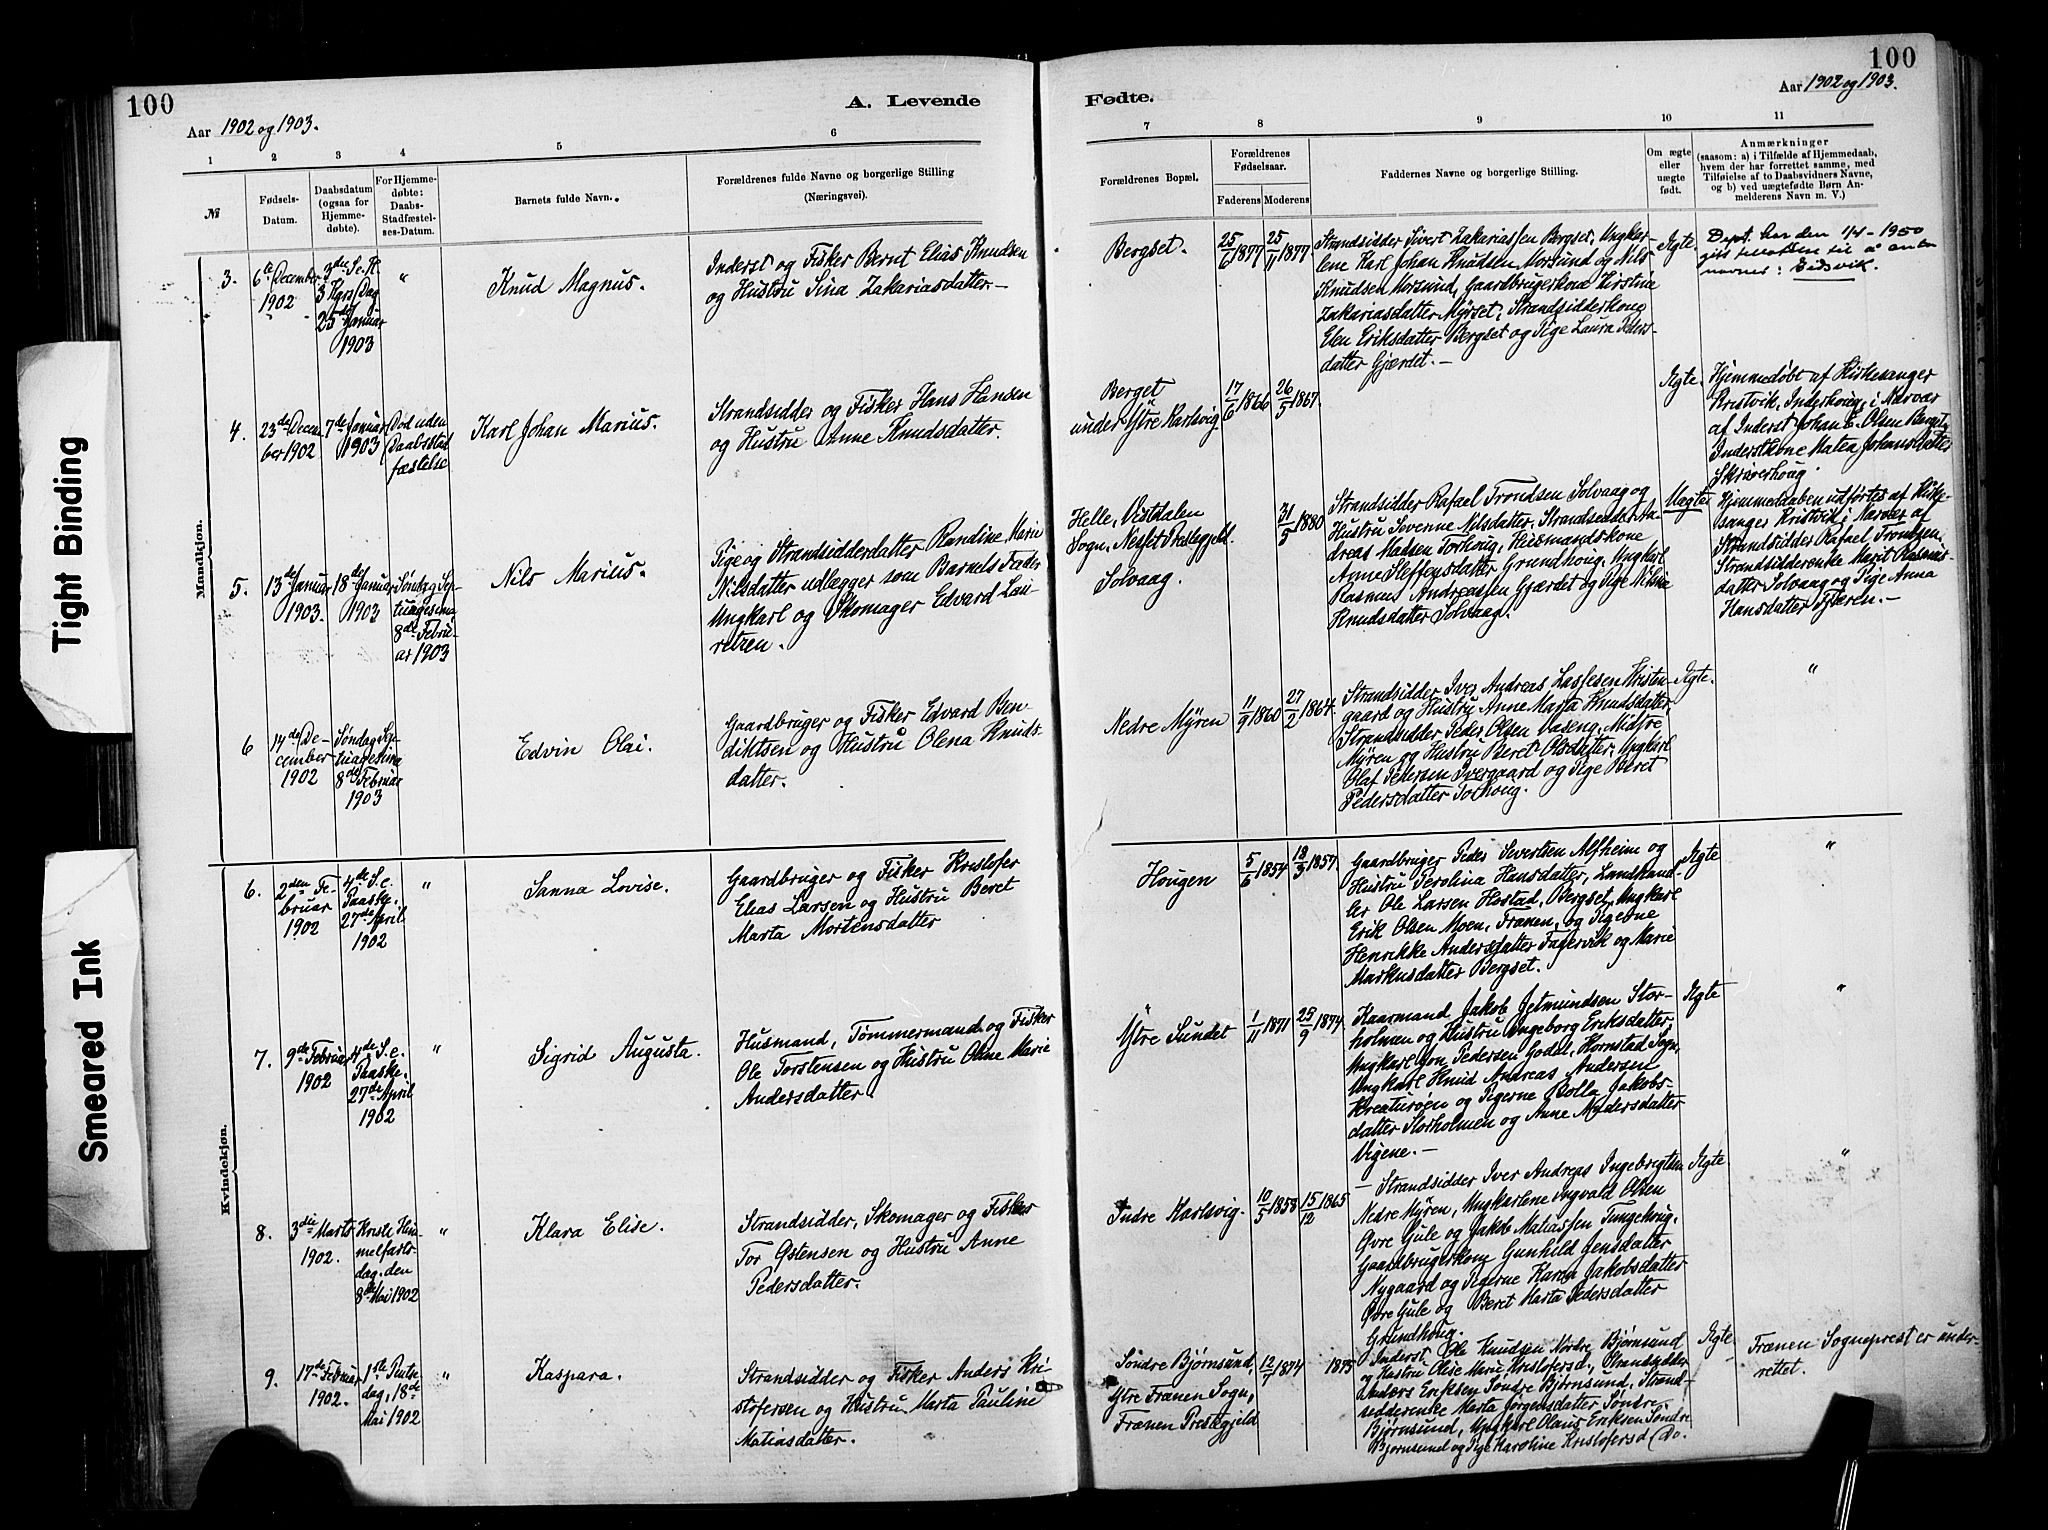 100
A. Levende
Aar 1902 og 1903.
1
2
3
4
5
6
№
Fødsels-
Datum.
Daabsdatum
(ogsaa for
Hjemme-
døbte).
For Hjemme-
døbte:
Daabs-
Stadfæstel-
ses-Datum.
Barnets fulde Navn.
Forældrenes fulde Navne og borgerlige Stilling
(Næringsvei).
Mandkjøn.
3.
6te December
1902
3die S. e. H.
3 Kgrs Dag
25de Januar
1903
"
Knud Magnus.
Inderst og Fisker Bernt Elias Knudsen
og Hustru Sina Zakariasdatter.—
4.
23de Decem
ber 1902
7de Januar
1903
Død uden
Daabsstad
fæstelse
Karl Johan Marius.
Strandsidder og Fisker Hans Hansen
og Hustru Anne Knudsdatter.
5.
13de Januar
1903.
18de Januar
1903
Søndag Sep-
tuagesima
8de Febru-
ar 1903
Nils Marius.
Pige og Strandsidderdatter Randine Marie
Nilsdatter udlægger som Barnets Fader
Ungkarl og Skomager Edvard Lau-
retzen.
6
14de De-
cember
1902
Søndag Sep-
tuagesima
8de Februar
1903
Edvin Olai.
Gaardbruger og Fisker Edvard Ben-
diktsen og Hustru Olena Knuds-
datter.
Kvindekjøn.
6.
2den Fe-
bruar
1902
4de S. e.
Paaske.
27de April
1902
"
Sanna Lovise.
Gaardbruger og Fisker Kristofer
Elias Larsen og Hustru Beret
Marta Mortensdatter
7.
9de Februar
1902
4de S. e.
Paaske.
27de April
1902
"
Sigrid Augusta.
Husmand, Tømmermand og Fisker
Ole Torstensen og Hustru Anne Marie
Andersdatter.
8.
3die Marts
1902.
Kristi Him-
melfarts-
dag, den
8de Mai 1902
"
Klara Elise.
Strandsidder, Skomager og Fisker
Tor Østensen og Hustru Anne
Pedersdatter.
9.
17de Februar
1902.
1ste Pintse
dag, 18de
Mai 1902
"
Kaspara.
Strandsidder og Fisker Anders Kri-
stofersen og Hustru Marta Pauline
Matiasdatter.
100
Fødte.
Aar 1902 og 1903.
7
8
9
10
11
Forældrenes Bopæl.
Forældrenes
Fødselsaar.
Faderens
Moderens
Faddernes Navne og borgerlige Stilling.
Om ægte
eller
uægte
født.
Anmærkninger
(saasom: a) i Tilfælde af Hjemmedaab,
hvem der har forrettet samme, med
Tilføielse af to Daabsvidners Navne,
og b) ved uægtefødte Børn An-
melderens Navn m. V.)
Bergset.
25/6 1877
25/11 1877
Strandsidder Sivert Zakariassen Bergset, Ungkar-
lene Karl Johan Knudsen Vorsund og Nils
Knudsen Vorsund, Gaardbrugerkone Kirstine
Zakariasdatter Myrset, Strandsidderkone
Elen Eriksdatter Bergset og Pige Laura Peders-
datter Gjærdet.—
Ægte.
Dept. har den 1/4 - 1950
gitt tillatelse til å anta
navnet: Eidsvik.
Berget
under Ytre Karlsvig.
17/6 1866
26/5 1867.
Ægte.
Hjemmedøbt af Kirkesanger
Kristvik, Inderhoug, i Nærvær
af Inderst Johan E. Olsen Berget,
Inderstkone Matea Johansdatter
Skriverhoug.
Helle, Vistdalen
Sogn, Nesset Prestegjeld.
Solvaag.
31/5 1880
Strandsidder Rafael Trondsen Solvaag og
Hustru Severine Nilsdatter, Strandsidder An-
dreas Madsen Torhoug, Husmandskone
Anne Steffensdatter Grundhoug, Ungkarl
Rasmus Andreassen Gjærdet og Pige Nikoline
Knudsdatter Solvaag.
Uægte
Hjemmedaaben udførtes af Kirke-
sanger Kristvik i Nærvær af
Strandsidder Rafael Trondsen,
Strandsidderenke Marit Rasmus-
datter Solvaag og Pige Anna
Hansdatter Fjæren.—
Nedre Myren
11/9 1860
27/2 1864.
Strandsidder Iver Andreas Lassesen Kristin-
gaard og Hustru Anne Marta Knudsdatter,
Strandsidder Peder Olsen Vaseng, Midtre
Myren og Hustru Beret Olsdatter, Ungkarl
Olaf Pedersen Ivergaard og Pige Beret
Pedersdatter Torhoug.
Ægte.
"
Hougen
5/6 1854
18/3 1857.
Gaardbruger Peder Sivertsen Alfheim og
Hustru Perolina Hansdatter, Landhand-
ler Ole Larsen Hostad, Bergset, Ungkarl
Erik Olsen Moen, Frænen, og Pigerne
Henrikke Andersdatter Fagervik og Marie
Markusdatter Bergset.
Ægte
"
Ytre Sundet
1/11 1871
25/9 1874
Kaarmand Jakob Jetmundsen Stor-
holmen og Hustru Ingeborg Eriksdatter,
Ungkarl Jon Pedersen Godal, Kornstad Sogn,
Ungkarl Knud Andreas Andersen
Kreaturøen og Pigerne Bolla Jakobs-
datter Storholmen og Anne Andersdatter
Vigene.—
Ægte
"
Indre Karlsvig.
10/5 1858
15/12 1865
— Strandsidder Iver Andreas Ingebrigtsen
Nedre Myren, Ungkarlene Ingvald Olsen
Øvre Gule og Jakob Matiassen Tungehoug,
Gaardbrugerkone Gunhild Jensdatter
Nygaard og Pigerne Karen Jakobsdatter
Øvre Gule og Beret Marta Pedersdatter
Grundhoug.
Ægte.
"
Søndre Bjørnsund,
Ytre Frænen Sogn,
Frænen Prestegjeld
12/7 1874
1875
Inderst Ole Knudsen Nordre Bjørnsund
og Hustru Elise Marie Kristofersd., Strandsidder
Anders Eriksen Søndre Bjørnsund, Strand-
sidderenke Marta Jørgensdatter Søndre
Bjørnsund, Ungkarl Olaus Eriksen Søndre
Bjørnsund og Pige Karoline Kristofersd. (Do.
Ægte.
Frænen Sogneprest er under-
rettet.
Tight Binding
Smeared Ink